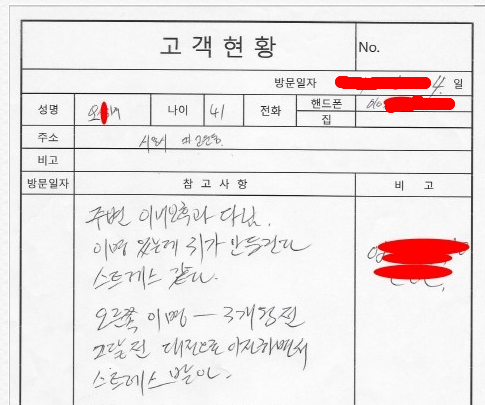 고객현황
No.
방문일자 4. 일
성명 나이 41 전화 핸드폰 010
집
주소
비고
방문일자 참고사항 비고
주변 이비인후과 다님.
이명 있는데 귀가 만들런다
스트레스 같다.
오른쪽 이명 - 3개월전
2달전 대전으로 이전하면서
스트레스 받아.